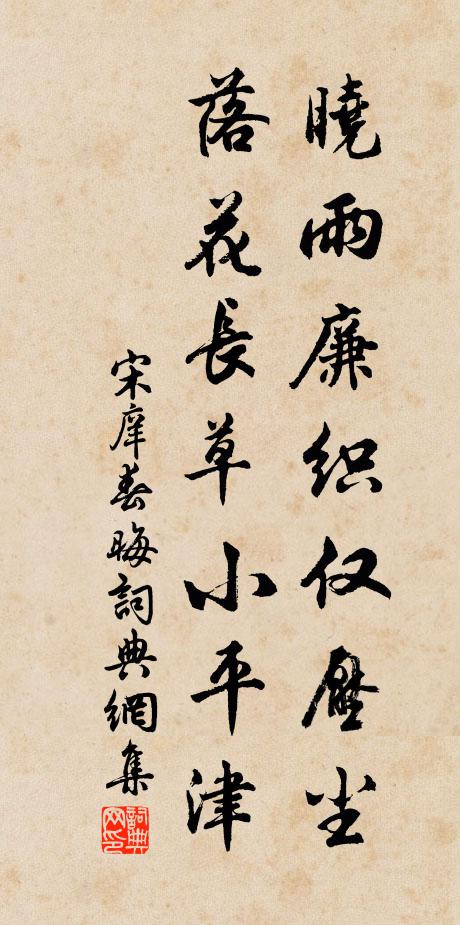 曉雨廉织仅壓尘
落花長草小平津
宋庠春晦詞典網集
詞典网印